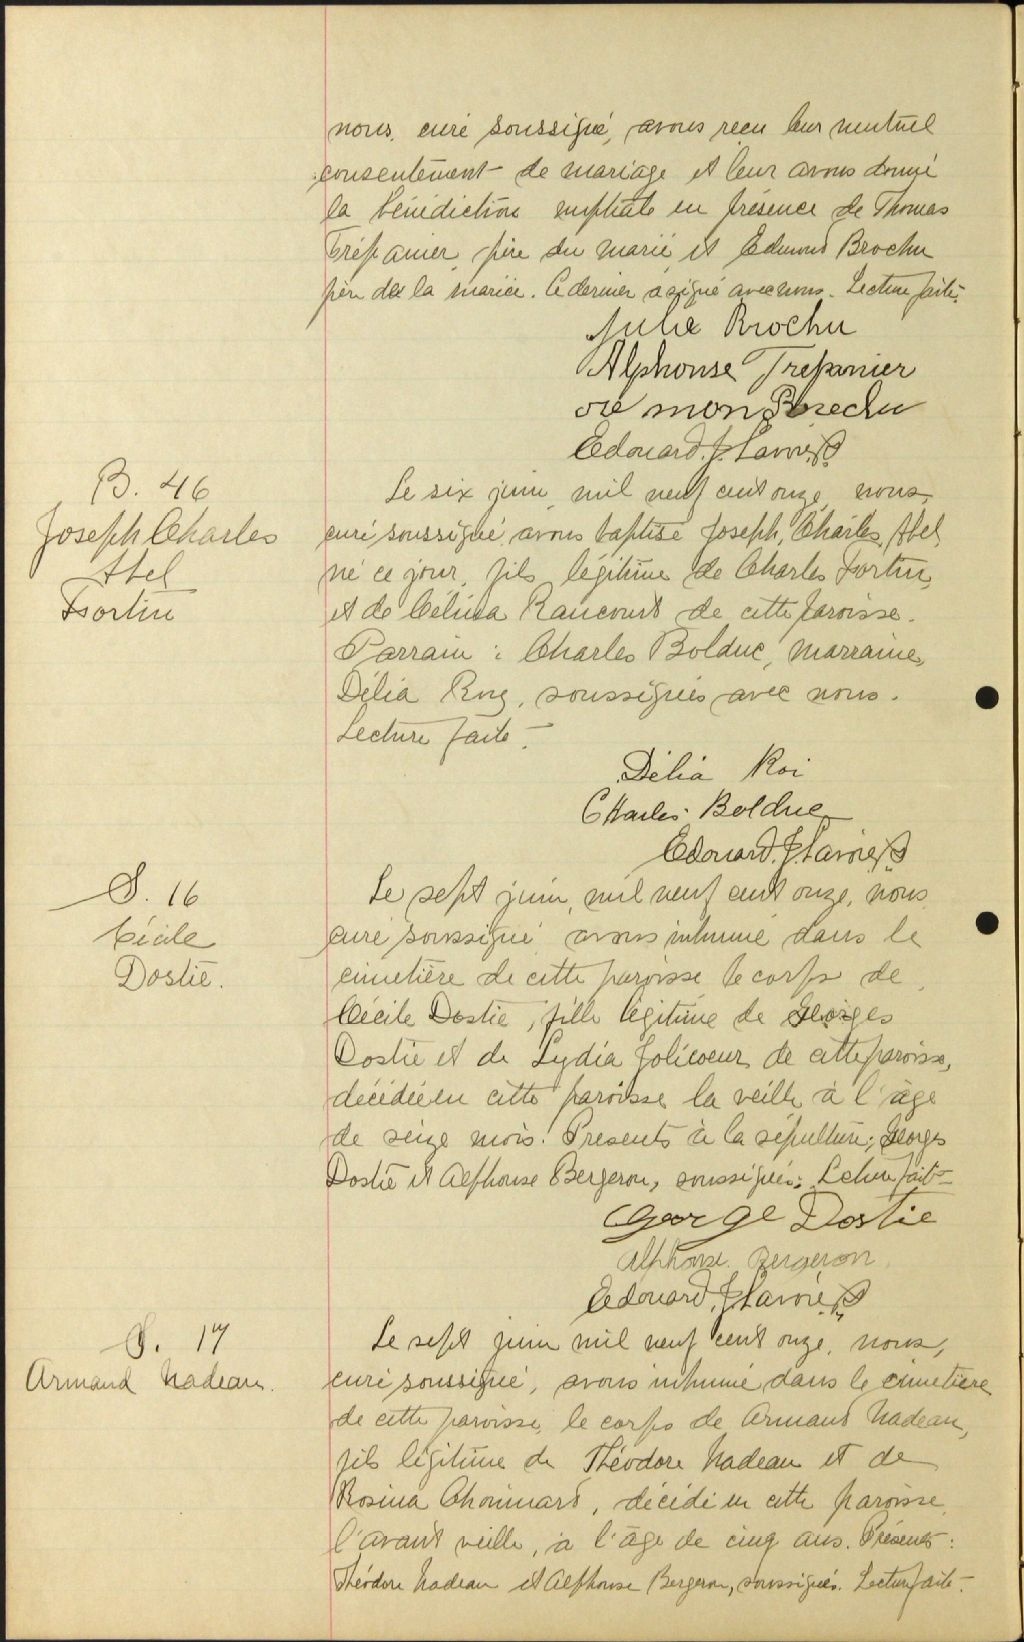 nous, curé soussigné, avons reçu leur mutuel
consentement de mariage et leur avons donné
la bénédiction nuptiale en présence de Thomas
Trépanier, père du marié et Edmond Brochu
père de la mariée. Ce dernier a signé avec nous. Lecture faite.
Julie Brochu
Alphonse Trepanier
Brochu
Edouard J. Lavoie, Ptre
B. 46
Joseph Charles
Abel
Fortin
Le six juin mil neuf cent onze, nous,
curé soussigné, avons baptisé Joseph, Charles, Abel,
né ce jour, fils légitime de Charles Fortin,
et de Célina Rancourt de cette paroisse.
Parrain : Charles Bolduc, marraine,
Délia Roy, soussignés avec nous.
Lecture faite.
Délia Roi
Charles Bolduc
Edouard J. Lavoie, Ptre
S. 16
Cécile
Dostie.
Le sept juin, mil neuf cent onze, nous,
curé soussigné avons inhumé dans le
cimetière de cette paroisse le corps de
Cécile Dostie, fille légitime de Georges
Dostie et de Lydia Jolicoeur, de cette paroisse,
décédée en cette paroisse la veille à l'âge
de seize mois. Présents à la sépulture, Georges
Dostie et Alphonse Bergeron, soussignés. Lecture faite
George Dostie
Alphonse Bergeron
Edouard J. Lavoie, Ptre
S. 17
Armand Nadeau.
Le sept juin mil neuf cent onze, nous,
curé soussigné, avons inhumé dans le cimetière
de cette paroisse, le corps de Armand Nadeau,
fils légitime de Théodore Nadeau et de
Rosina Chouinard, décédé en cette paroisse
l'avant veille, à l'âge de cinq ans. Présents :
Théodore Nadeau et Alphonse Bergeron, soussignés. Lecture faite.